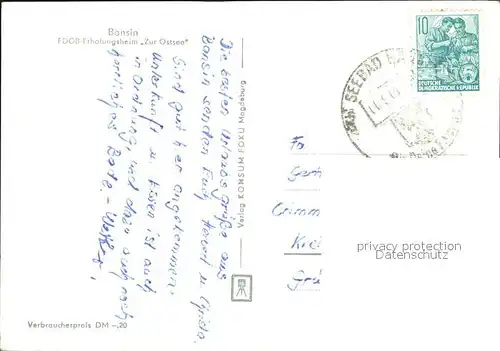 Bansin
FDGB-Erholungsheim „Zur Ostsee"
Die besten Urlaubsgrüße aus
Bansin senden Euch Herbert u. Christa.
Sind gut hier angekommen.
Unterkunft u. Essen ist auch
in Ordnung und dazu auch noch
herrliches Bade-Wetter,
Verlag KONSUM FOKU Magdeburg
Verbraucherpreis DM -,20
10
DEUTSCHE
DEMOKRATISCHE REPUBLIK
SEEBAD
Fa
Gerh
Grimm
Kiel
privacy protection
Datenschutz